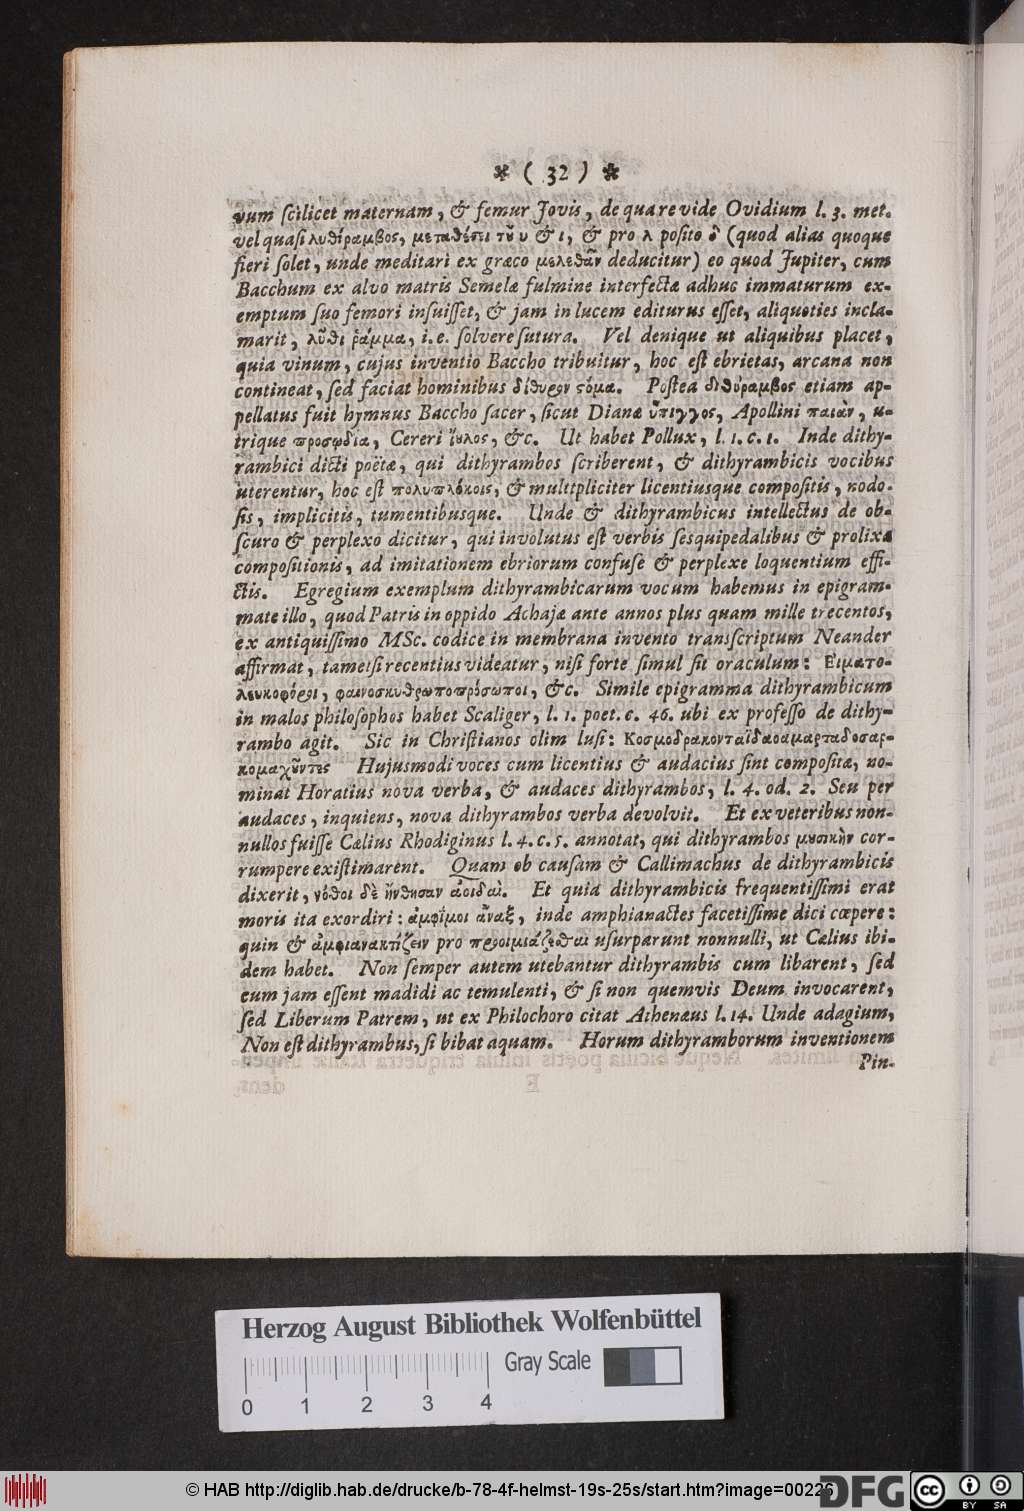 * ( 32 ) *
vum ſcilicet maternam, & femur Jovis, de qua re vide Ovidium l. 3. met.
vel quaſi λυθίραμβος, μεταθέσει τοῦ υ & ι, & pro λ poſito δ (quod alias quoque
fieri ſolet, unde meditari ex græco μελεθᾶν deducitur) eo quod Jupiter, cum
Bacchum ex alvo matris Semelæ fulmine interfectæ adhuc immaturum ex-
emptum ſuo femori inſuiſſet, & jam in lucem editurus eſſet, aliquoties incla-
marit, λῦθι ῥάμμα, i. e. ſolvere ſutura. Vel denique ut aliquibus placet,
quia vinum, cujus inventio Baccho tribuitur, hoc eſt ebrietas, arcana non
contineat, ſed faciat hominibus δίθυρον ϛόμα. Poſtea διθύραμβος etiam ap-
pellatus fuit hymnus Baccho ſacer, ſicut Dianæ ὔπιγγος, Apollini παιὰν, u-
trique προσῳδία, Cereri ἴυλος, &c. Ut habet Pollux, l. 1. c. 1. Inde dithy-
rambici dicti poëtæ, qui dithyrambos ſcriberent, & dithyrambicis vocibus
uterentur, hoc eſt πολυπλόκοις, & multipliciter licentiusque compoſitis, nodo-
ſis, implicitis, tumentibusque. Unde & dithyrambicus intellectus de ob-
ſcuro & perplexo dicitur, qui involutus eſt verbis ſesquipedalibus & prolixæ
compoſitionis, ad imitationem ebriorum confuſe & perplexe loquentium effi-
ctis. Egregium exemplum dithyrambicarum vocum habemus in epigram-
mate illo, quod Patris in oppido Achajæ ante annos plus quam mille trecentos,
ex antiquiſſimo MSc. codice in membrana invento transſcriptum Neander
affirmat, tametſi recentius videatur, niſi forte ſimul ſit oraculum: Εἱματο-
λευκοφόροι, φαινοσκυθρωποπρόσωποι, &c. Simile epigramma dithyrambicum
in malos philoſophos habet Scaliger, l. 1. poet. c. 46. ubi ex profeſſo de dithy-
rambo agit. Sic in Chriſtianos olim luſi: Κοσμοδρακονταϊδαοαμαρταδοσαρ-
κομαχοῦντες Hujusmodi voces cum licentius & audacius ſint compoſitæ, no-
minat Horatius nova verba, & audaces dithyrambos, l. 4. od. 2. Seu per
audaces, inquiens, nova dithyrambos verba devolvit. Et ex veteribus non-
nullos fuiſſe Cælius Rhodiginus l. 4. c. 5. annotat, qui dithyrambos μυσικὴν cor-
rumpere exiſtimarent. Quam ob cauſam & Callimachus de dithyrambicis
dixerit, νόθοι δὲ ἤνθησαν ἀοιδαὶ. Et quia dithyrambicis frequentiſſimi erat
moris ita exordiri: ἀμφίμοι ἄναξ, inde amphianactes facetiſſime dici cœpere:
quin & ἀμφιανακτίζειν pro προοιμιάζεσθαι uſurparunt nonnulli, ut Cælius ibi-
dem habet. Non ſemper autem utebantur dithyrambis cum libarent, ſed
cum jam eſſent madidi ac temulenti, & ſi non quemvis Deum invocarent,
ſed Liberum Patrem, ut ex Philochoro citat Athenæus l. 14. Unde adagium,
Non eſt dithyrambus, ſi bibat aquam. Horum dithyramborum inventionem
Pin-
Herzog August Bibliothek Wolfenbüttel
Gray Scale
0 1 2 3 4
© HAB http://diglib.hab.de/drucke/b-78-4f-helmst-19s-25s/start.htm?image=00226
DFG
cc BY SA